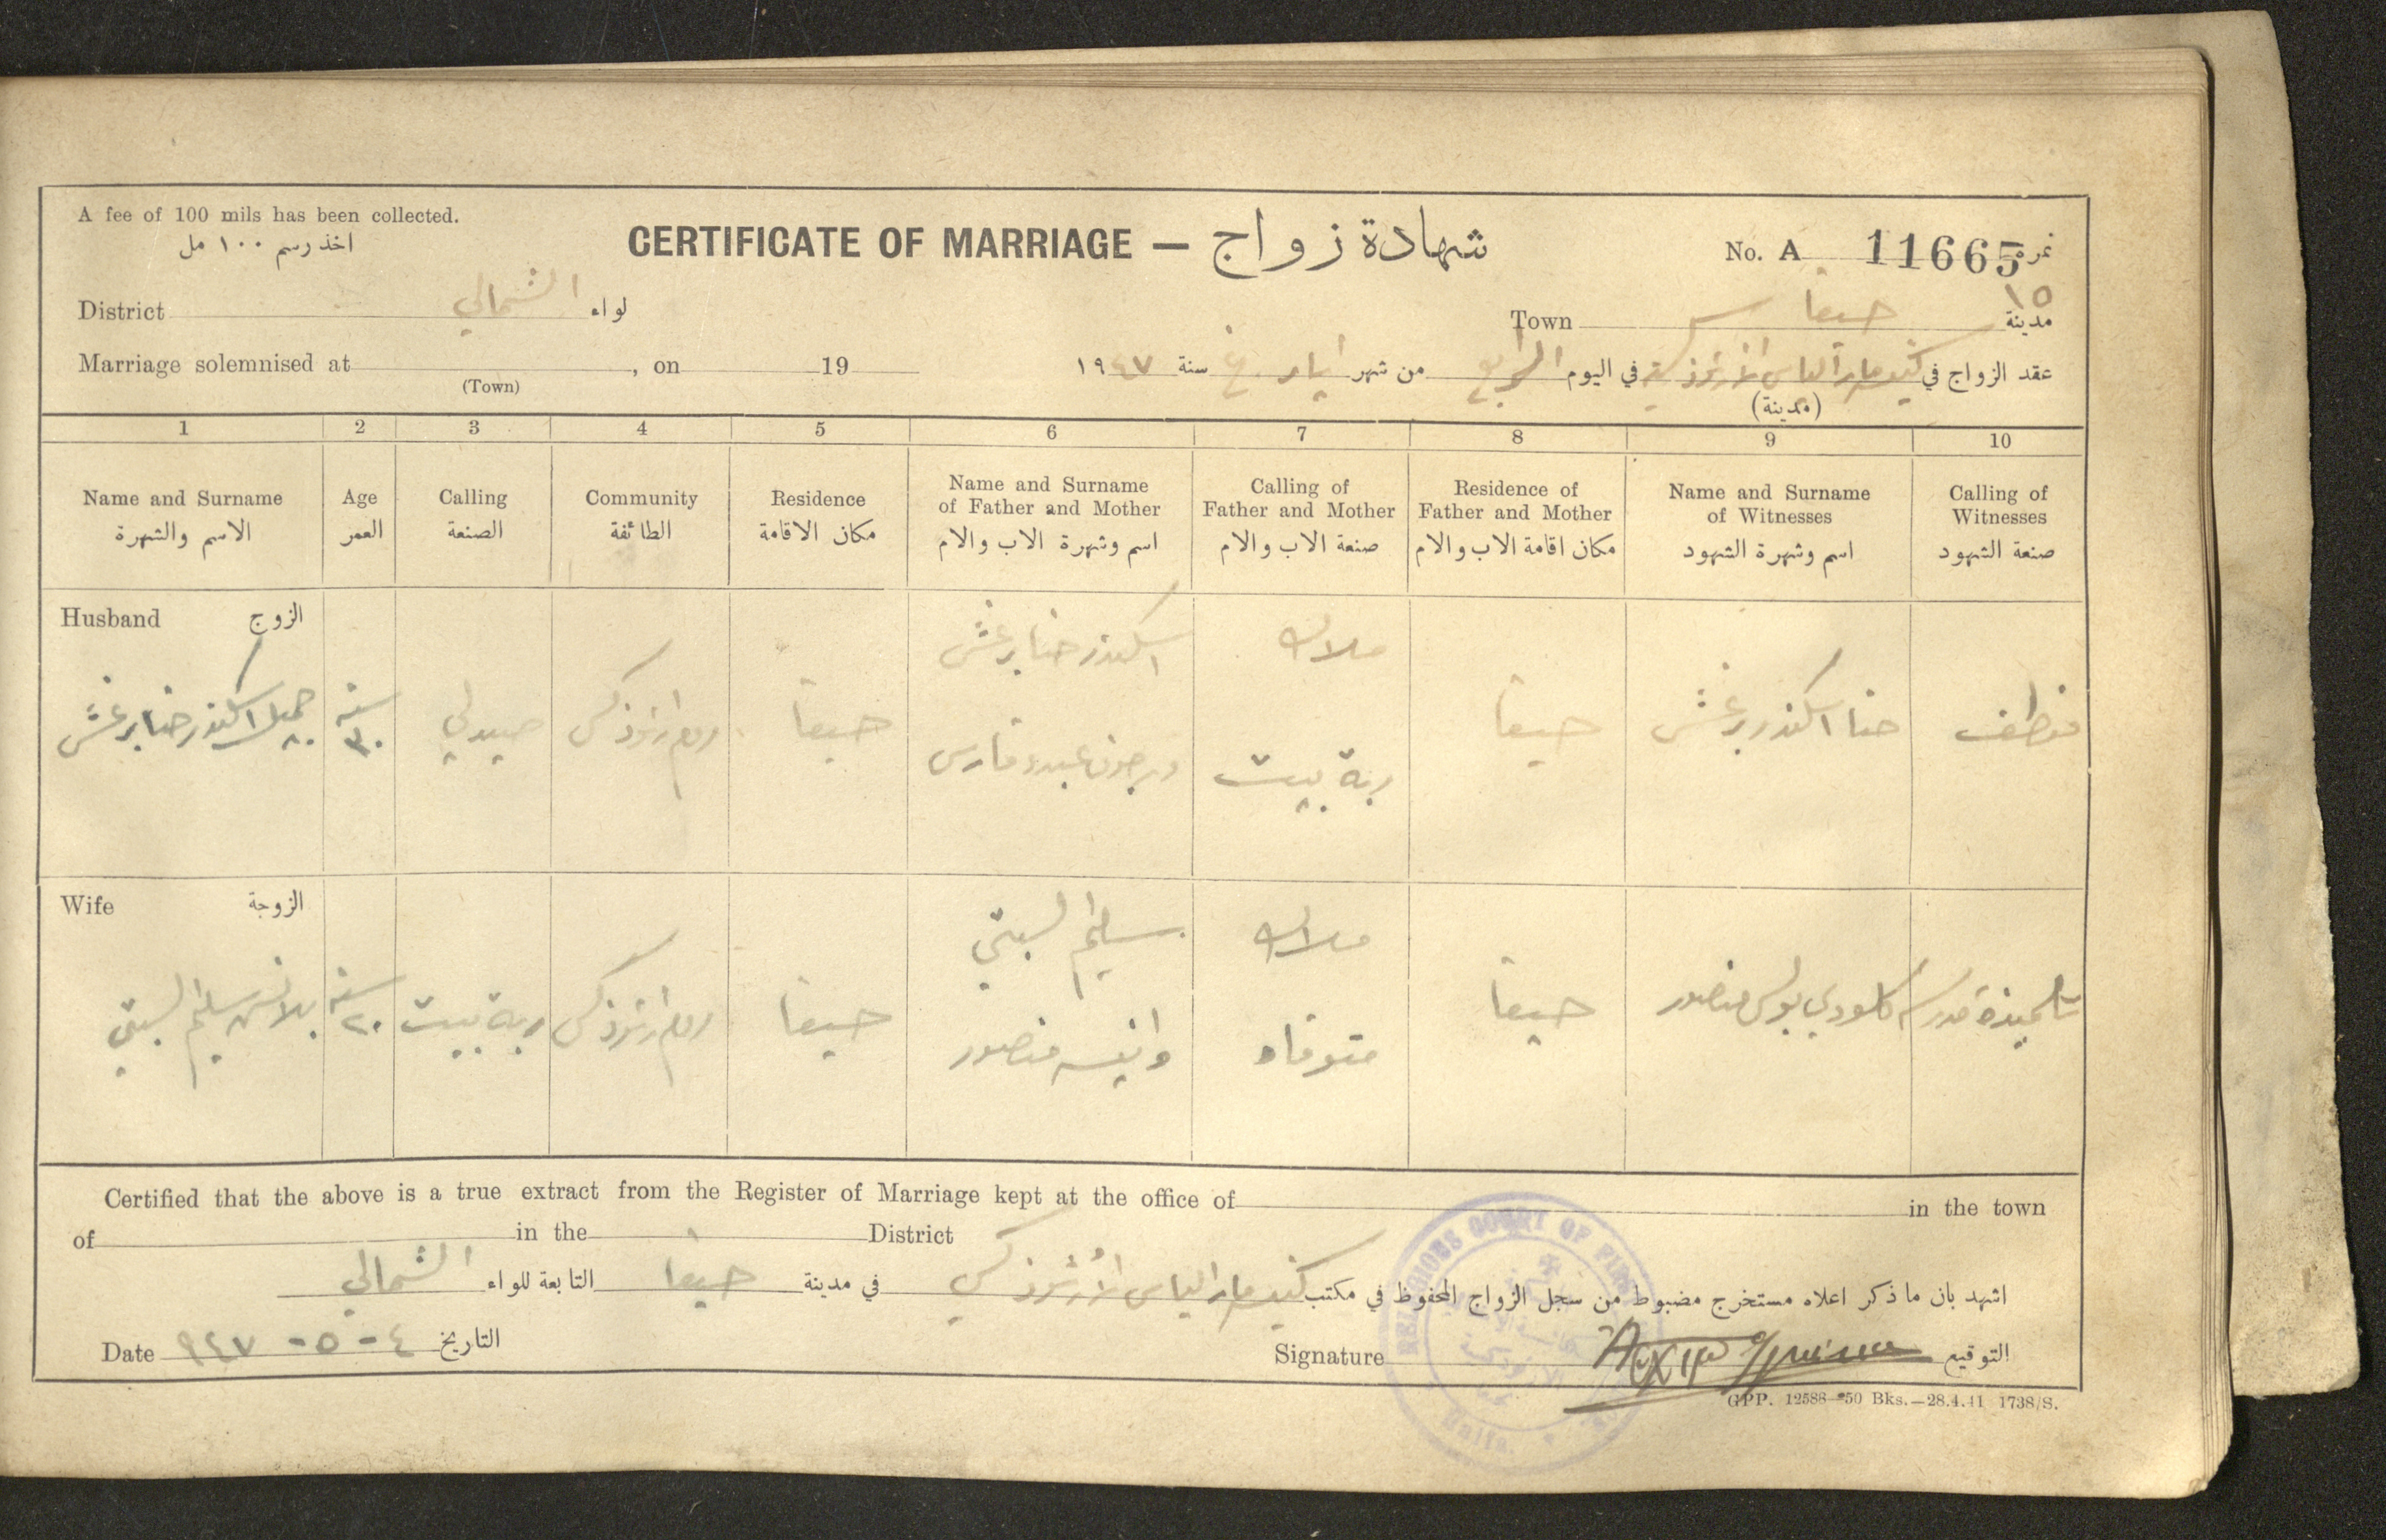 A fee of 100 mils has been collected.
اخذ رسم ١٠٠ مل
CERTIFICATE OF MARRIAGE — شهادة زواج
No. A 11665 نمرة
١٥
District الشمالي لواء
Town حيفا مدينة
Marriage solemnised at , on 19
(Town)
عقد الزواج في كنيسة مار الياس الأرثوذكسية في اليوم الرابع من شهر أيار سنة ١٩٤٧
(مدينة)
1 2 3 4 5 6 7 8 9 10
Name and Surname
الاسم والشهرة
Age
العمر
Calling
الصنعة
Community
الطائفة
Residence
مكان الاقامة
Name and Surname
of Father and Mother
اسم وشهرة الاب والام
Calling of
Father and Mother
صنعة الاب والام
Residence of
Father and Mother
مكان اقامة الاب والام
Name and Surname
of Witnesses
اسم وشهرة الشهود
Calling of
Witnesses
صنعة الشهود
Husband الزوج
جميل اسكندر حنا برغش
سنة
٣٠
صيدلي
روم ارثوذكس
حيفا
اسكندر حنا برغش
عبده فارس
ملاك
ربة بيت
حيفا
حنا اسكندر برغش
موظف
Wife الزوجة
بلانش سليم السبتي
سنة
٢٠
ربة بيت
روم ارثوذكس
حيفا
سليم السبتي
وانيسه منصور
ملاك
متوفاه
حيفا
كلودي بولس منصور
تلميذة مدرسه
Certified that the above is a true extract from the Register of Marriage kept at the office of in the town
of in the District
اشهد بان ما ذكر اعلاه مستخرج مضبوط من سجل الزواج المحفوظ في مكتب كنيسة مار الياس الأرثوذكسي في مدينة حيفا التابعة للواء الشمالي
Date ٤ - ٥ - ٩٤٧ التاريخ
Signature التوقيع
RELIGIOUS COURT OF FIRST
Haifa.
GPP. 12588—50 Bks.—28.4.41 1738/S.